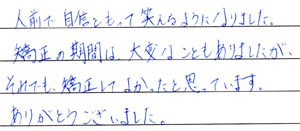 人前で自信をもって笑えるようになりました。
矯正の期間は、大変なこともありましたが、
それでも、矯正してよかったと思っています。
ありがとうございました。